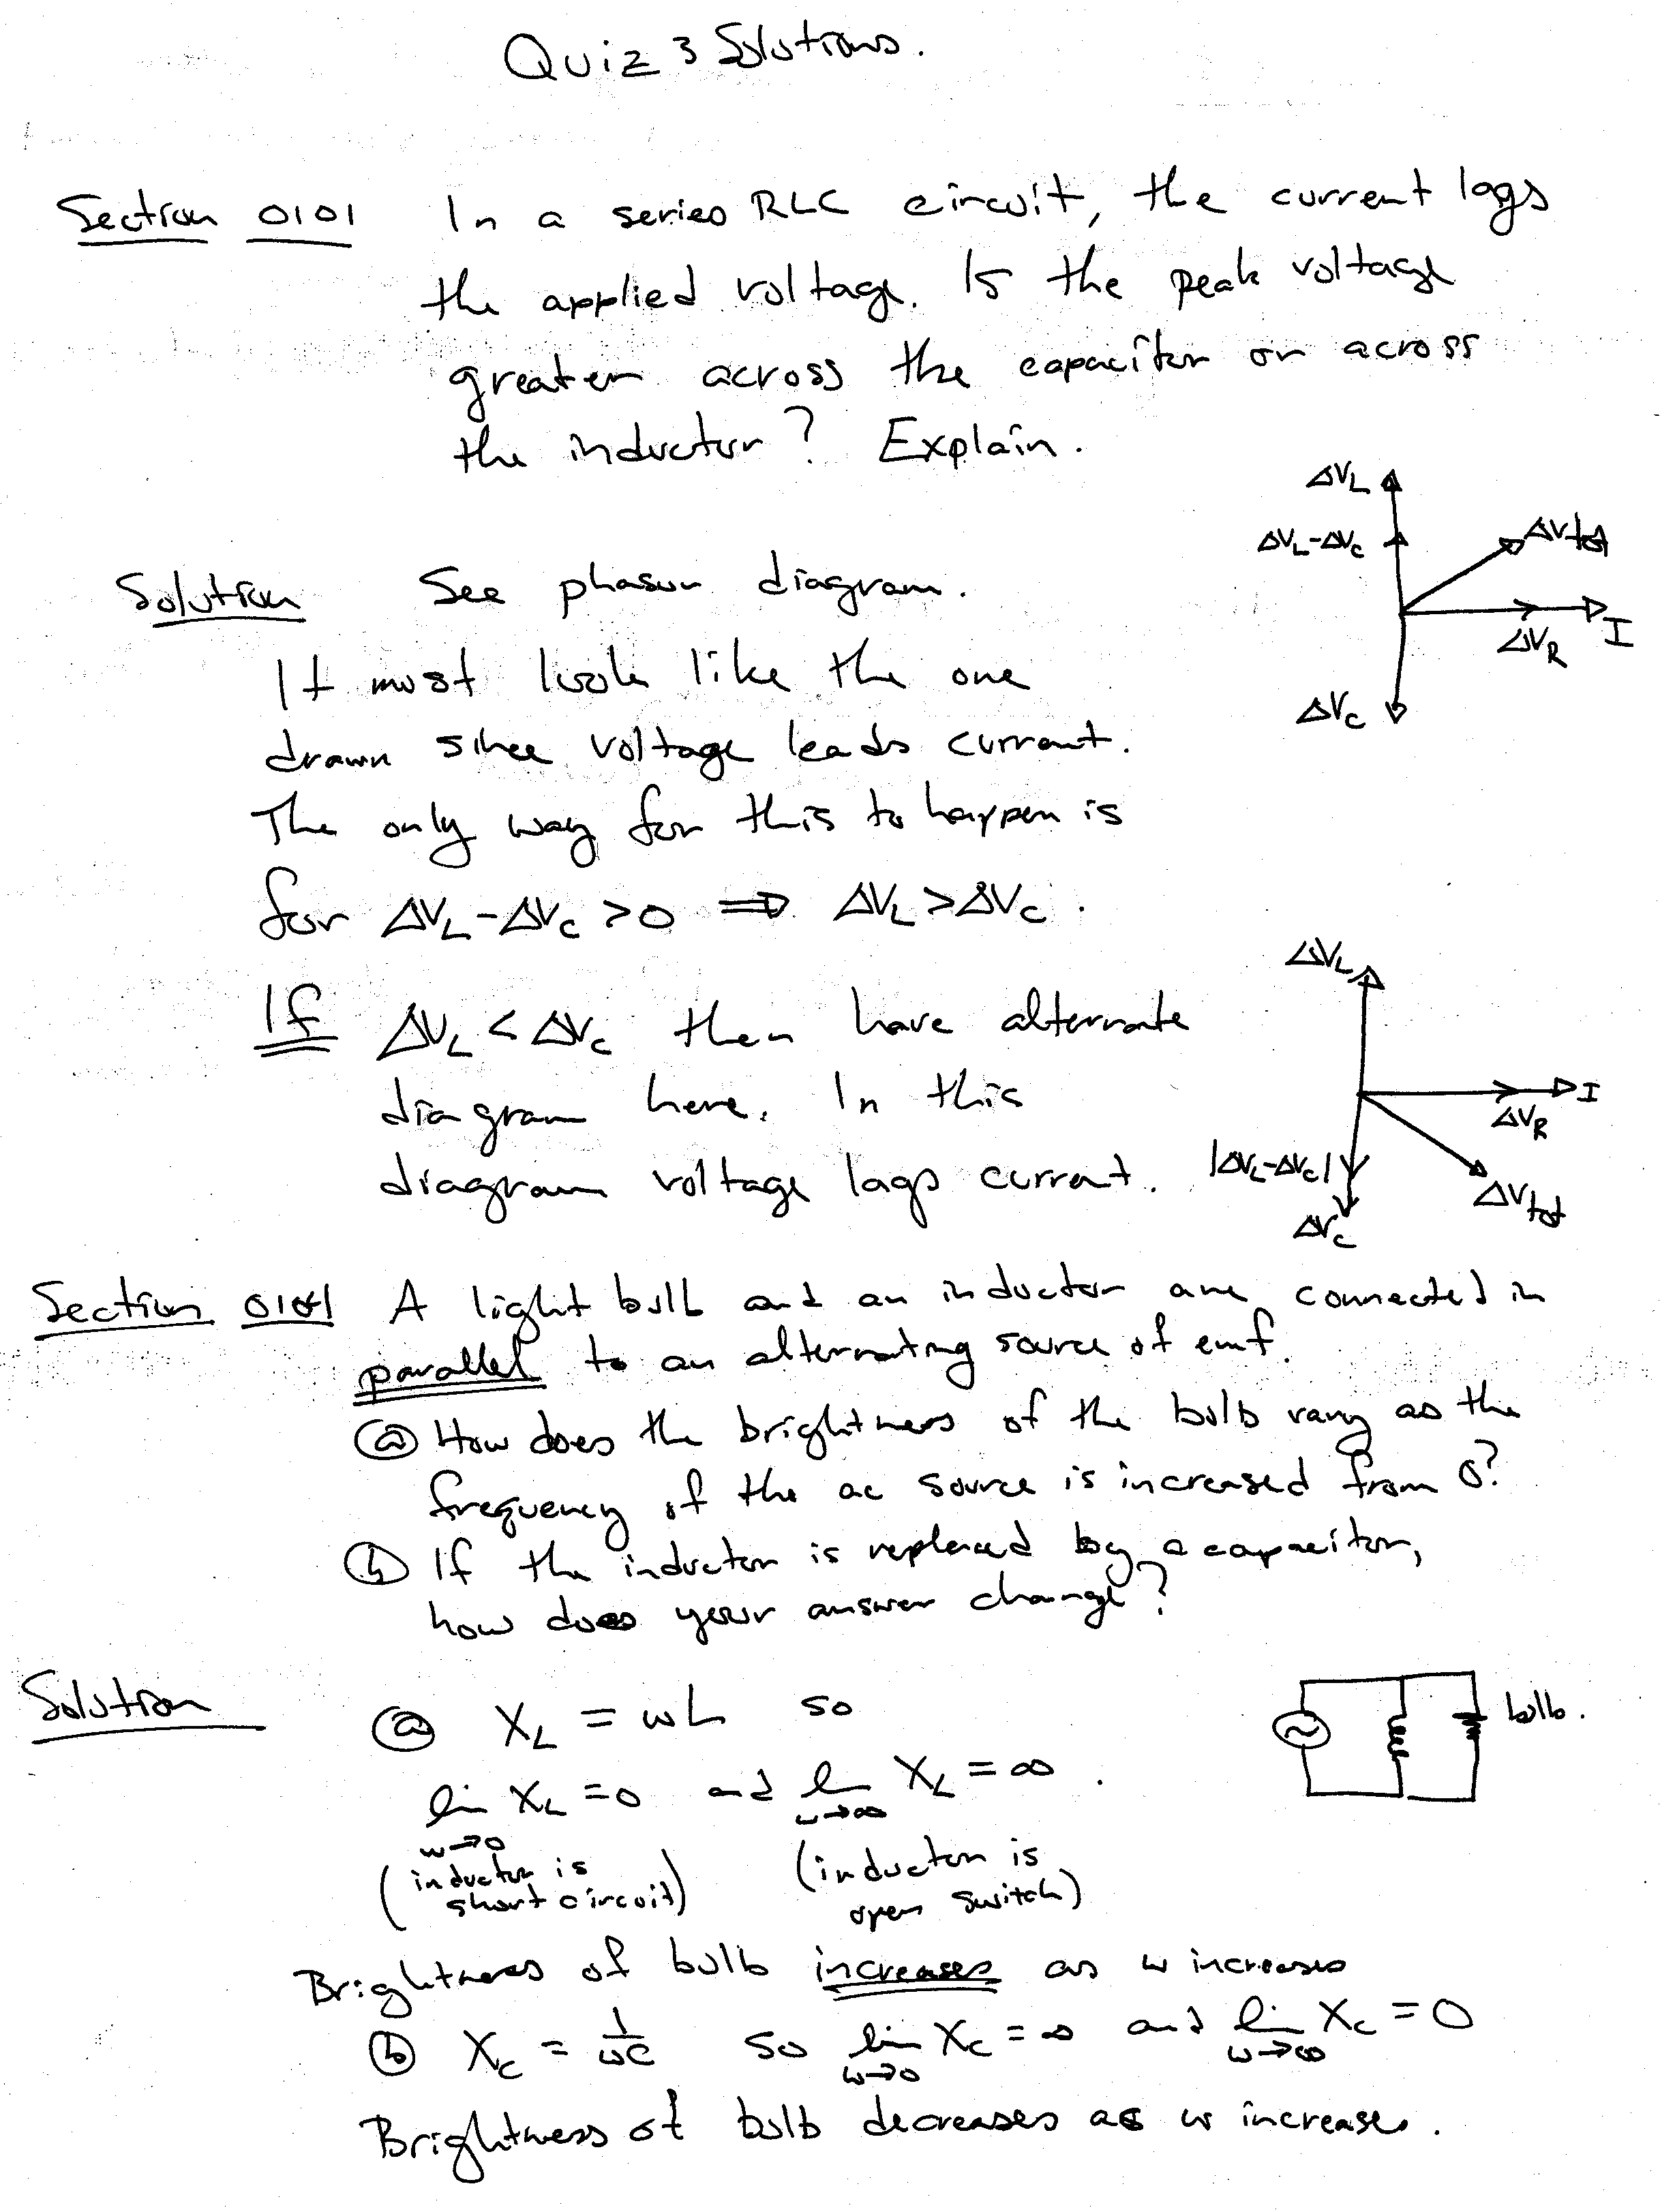 Quiz 3 Solutions.
Section 0101 In a series RLC circuit, the current lags
the applied voltage. Is the peak voltage
greater across the capacitor or across
the inductor? Explain.
ΔV_L
ΔV_L-ΔV_c
ΔV_tot
I
ΔV_R
ΔV_c
Solution See phasor diagram.
It must look like the one
drawn since voltage leads current.
The only way for this to happen is
for ΔV_L-ΔV_c >0 ⟹ ΔV_L>ΔV_c.
If ΔV_L < ΔV_c then have alternate
diagram here. In this
diagram voltage lags current.
ΔV_L
I
ΔV_R
|ΔV_L-ΔV_c|
ΔV_tot
ΔV_c
Section 0101 A light bulb and an inductor are connected in
parallel to an alternating source of emf.
ⓐ How does the brightness of the bulb vary as the
frequency of the ac source is increased from 0?
ⓑ If the inductor is replaced by a capacitor,
how does your answer change?
Solution ⓐ X_L = ωL so
bulb.
lim X_L = 0 and lim X_L = ∞.
ω→0 ω→∞
(inductor is (inductor is
short circuit) open switch)
Brightness of bulb increases as ω increases
ⓑ X_c = 1/ωC so lim X_c = ∞ and lim X_c = 0
ω→0 ω→∞
Brightness of bulb decreases as ω increases.